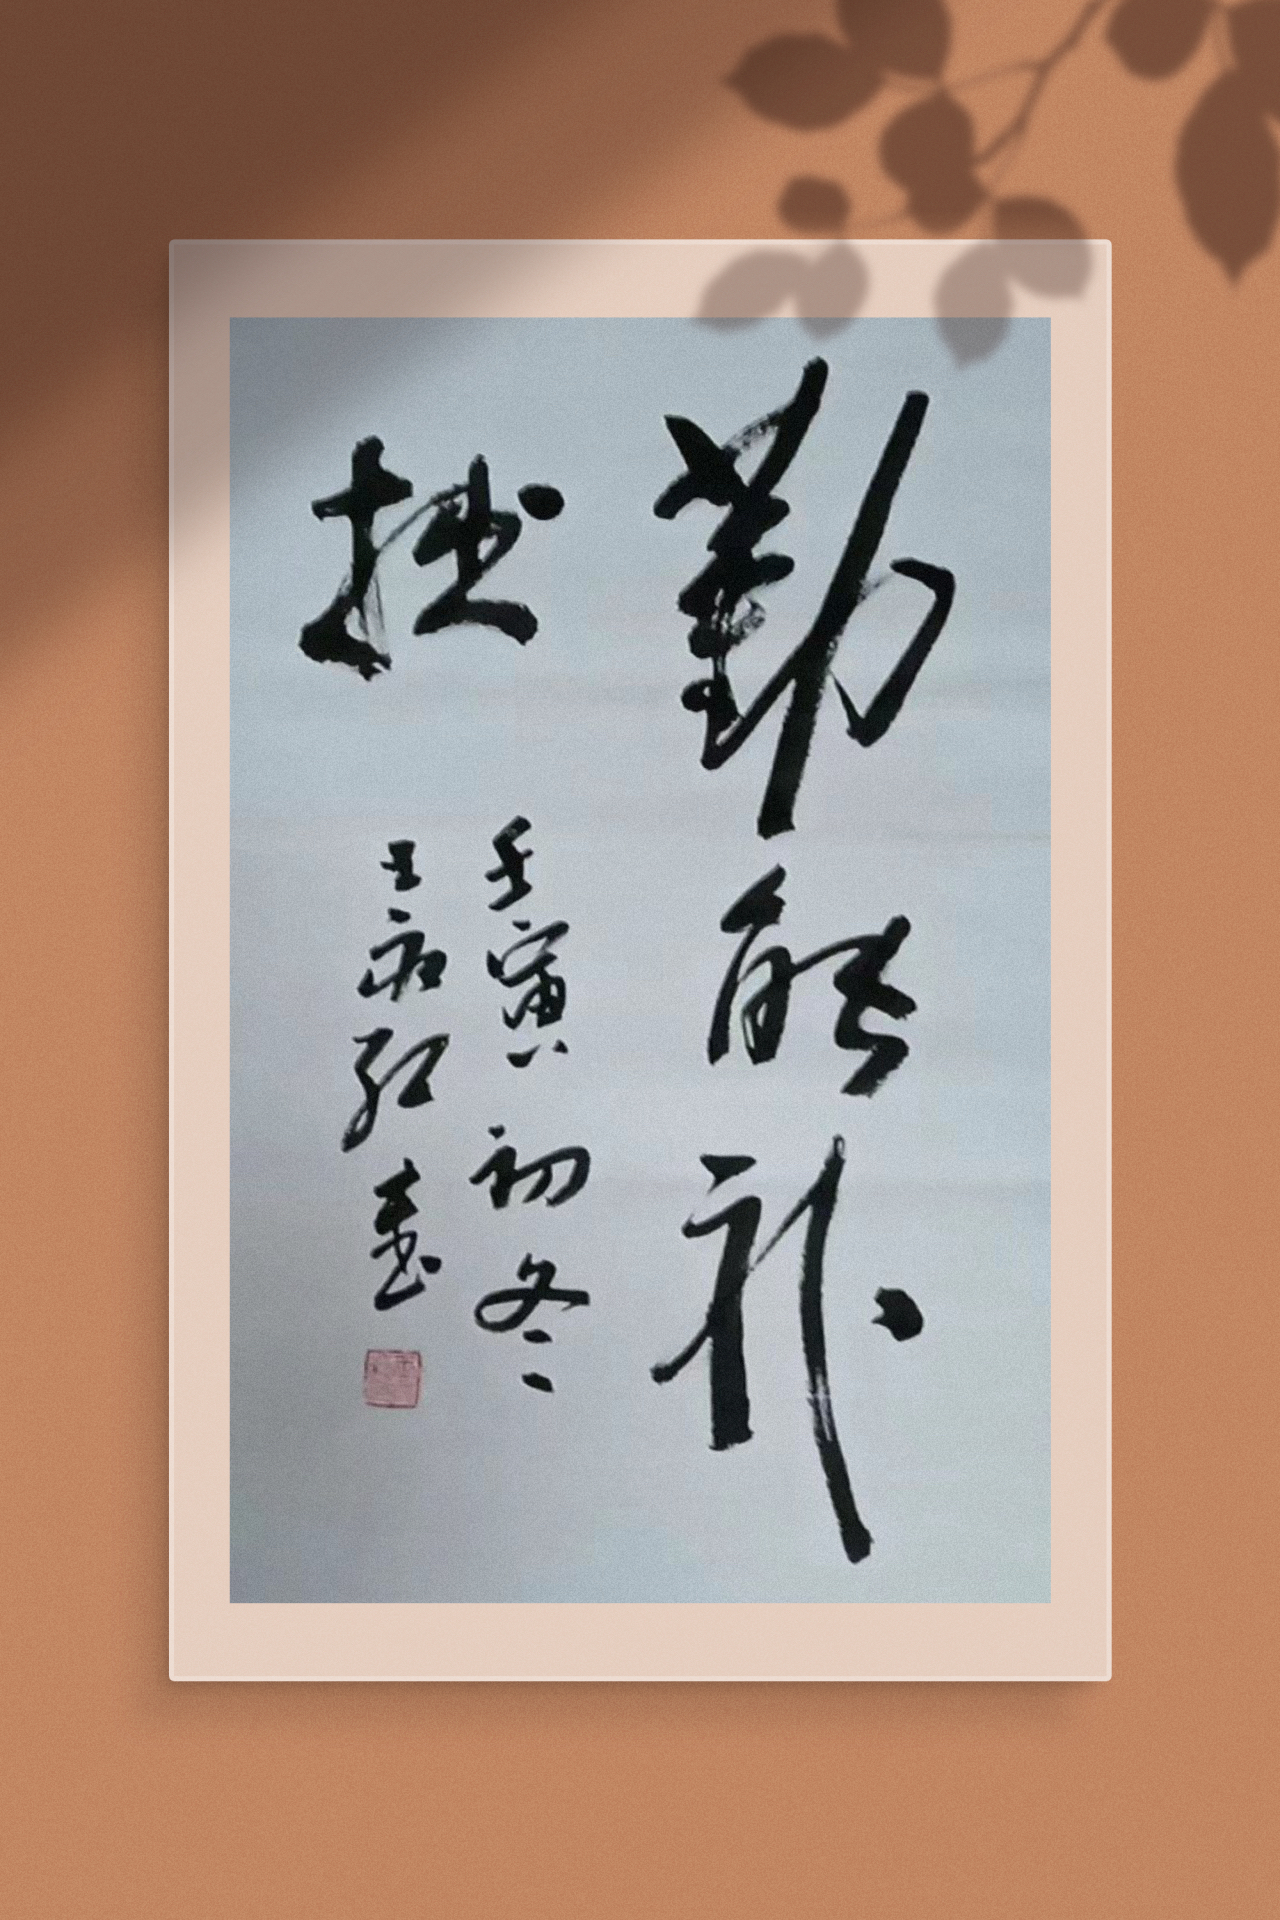 勤能补
拙
壬寅初冬
王永红书